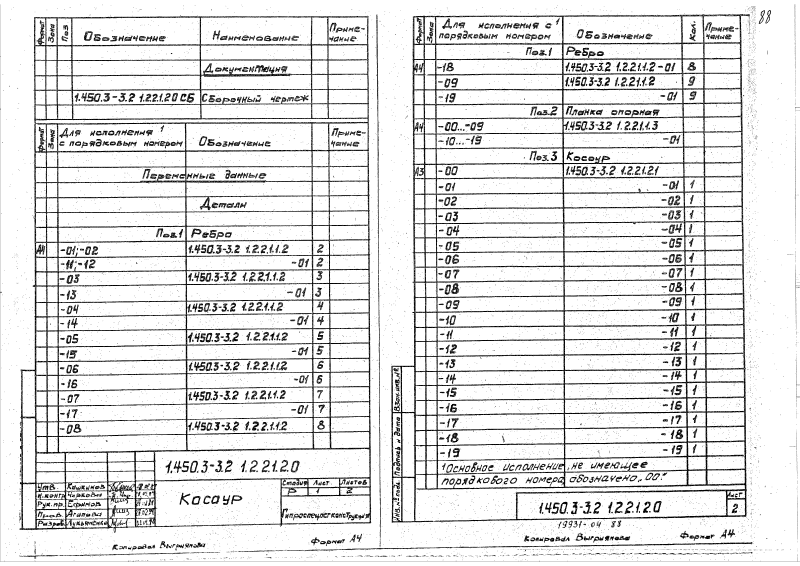 Формат Зона Поз. Обозначение Наименование Примечание
Документация
1.450.3-3.2 1.2.2.1.2.0 СБ Сборочный чертеж
Формат Зона Для исполнения с порядковым номером 1 Обозначение Примечание
Переменные данные
Детали
Поз.1 Ребро
А4 -01;-02 1.450.3-3.2 1.2.2.1.1.2 2
-11;-12 -01 2
-03 1.450.3-3.2 1.2.2.1.1.2 3
-13 -01 3
-04 1.450.3-3.2 1.2.2.1.1.2 4
-14 -01 4
-05 1.450.3-3.2 1.2.2.1.1.2 5
-15 -01 5
-06 1.450.3-3.2 1.2.2.1.1.2 6
-16 -01 6
-07 1.450.3-3.2 1.2.2.1.1.2 7
-17 -01 7
-08 1.450.3-3.2 1.2.2.1.1.2 8
1.450.3-3.2 1.2.2.1.2.0
Утв. Кошкинов
Н.контр. Чиркович
Рук.пр.
Пров. Агапкин
Разраб. Лукьяненко
Косоур
Стадия Лист Листов
Р 1 2
Гипроспецлегконструкция
Копировал Выгриянова Формат А4
88
Формат Зона Для исполнения с порядковым номером 1 Обозначение Кол. Примечание
Поз.1 Ребро
А4 -18 1.450.3-3.2 1.2.2.1.1.2-01 8
-09 1.450.3-3.2 1.2.2.1.1.2 9
-19 -01 9
Поз.2 Планка опорная
А4 -00...-09 1.450.3-3.2 1.2.2.1.1.3
-10...-19 -01
Поз.3 Косоур
А3 -00 1.450.3-3.2 1.2.2.1.2.1
-01 -01 1
-02 -02 1
-03 -03 1
-04 -04 1
-05 -05 1
-06 -06 1
-07 -07 1
-08 -08 1
-09 -09 1
-10 -10 1
-11 -11 1
-12 -12 1
-13 -13 1
-14 -14 1
-15 -15 1
-16 -16 1
-17 -17 1
-18 -18 1
-19 -19 1
1 Основное исполнение, не имеющее
порядкового номера, обозначено „00."
Инв.№подл. Подпись и дата Взам.инв.№
1.450.3-3.2 1.2.2.1.2.0
Лист
2
19931-04 88
Копировал Выгриянова Формат А4